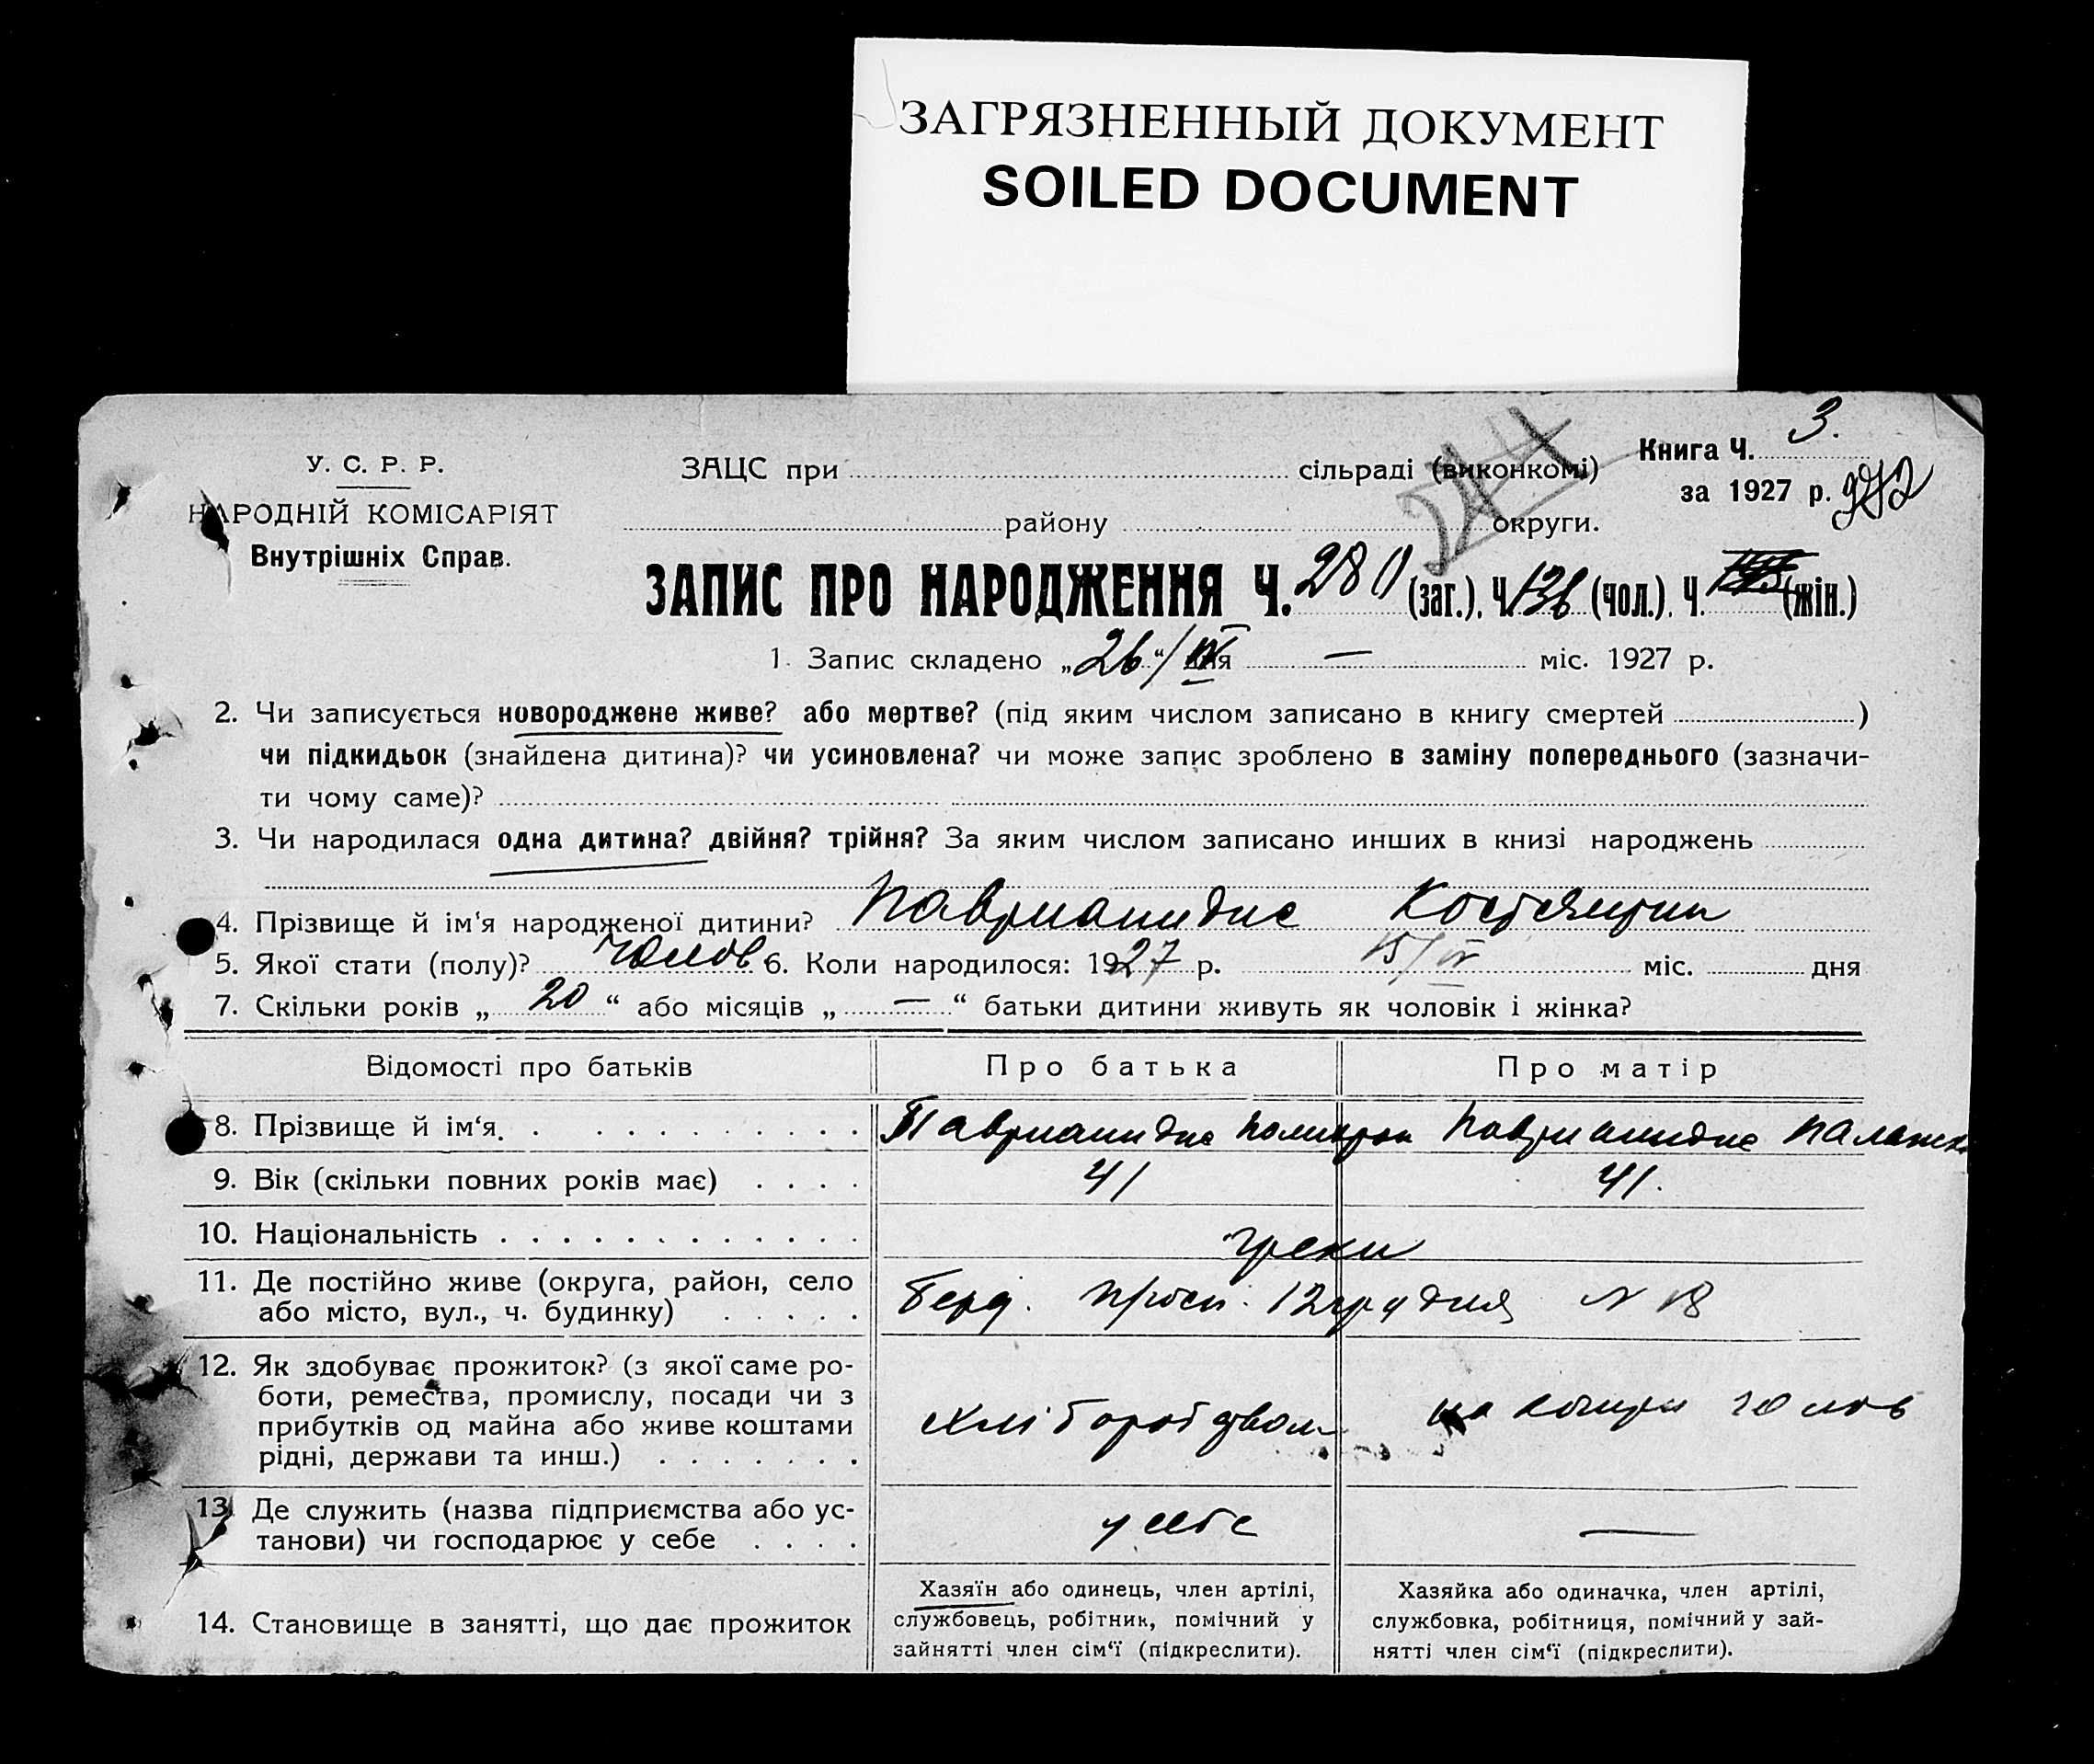 ЗАГРЯЗНЕННЫЙ ДОКУМЕНТ
SOILED DOCUMENT
У. С. Р. Р.
НАРОДНІЙ КОМІСАРІЯТ
Внутрішніх Справ.
ЗАЦС при сільраді (виконкомі)
району округи.
Книга Ч. 3.
за 1927 р.
244
ЗАПИС ПРО НАРОДЖЕННЯ Ч. 280 (заг.), Ч. 136 (чол.), Ч. (жін.)
1. Запис складено „26“/IV дня — міс. 1927 р.
2. Чи записується новороджене живе? або мертве? (під яким числом записано в книгу смертей )
чи підкидьок (знайдена дитина)? чи усиновлена? чи може запис зроблено в заміну попереднього (зазначи-
ти чому саме)?
3. Чи народилася одна дитина? двійня? трійня? За яким числом записано инших в книзі народжень
4. Прізвище й ім‘я народженої дитини? Паврианидис
5. Якої стати (полу)? чолов 6. Коли народилося: 1927 р. 15/IV міс. дня
7. Скільки років „20“ або місяців „—“ батьки дитини живуть як чоловік і жінка?
Відомості про батьків Про батька Про матір
8. Прізвище й ім‘я. Паврианидис Паврианидис
9. Вік (скільки повних років має) 41 41.
10. Національність греки
11. Де постійно живе (округа, район, село
або місто, вул., ч. будинку) Берд. просп. 12 грудня N 18
12. Як здобуває прожиток? (з якої саме ро-
боти, ремества, промислу, посади чи з
прибутків од майна або живе коштами
рідні, держави та инш.) хліборобством на кошти чолов
13. Де служить (назва підприємства або ус-
танови) чи господарює у себе у себе —
14. Становище в занятті, що дає прожиток
Хазяїн або одинець, член артілі,
службовець, робітник, помічний у
зайнятті член сім‘ї (підкреслити).
Хазяйка або одиначка, член артілі,
службовка, робітниця, помічний у зай-
нятті член сім‘ї (підкреслити).